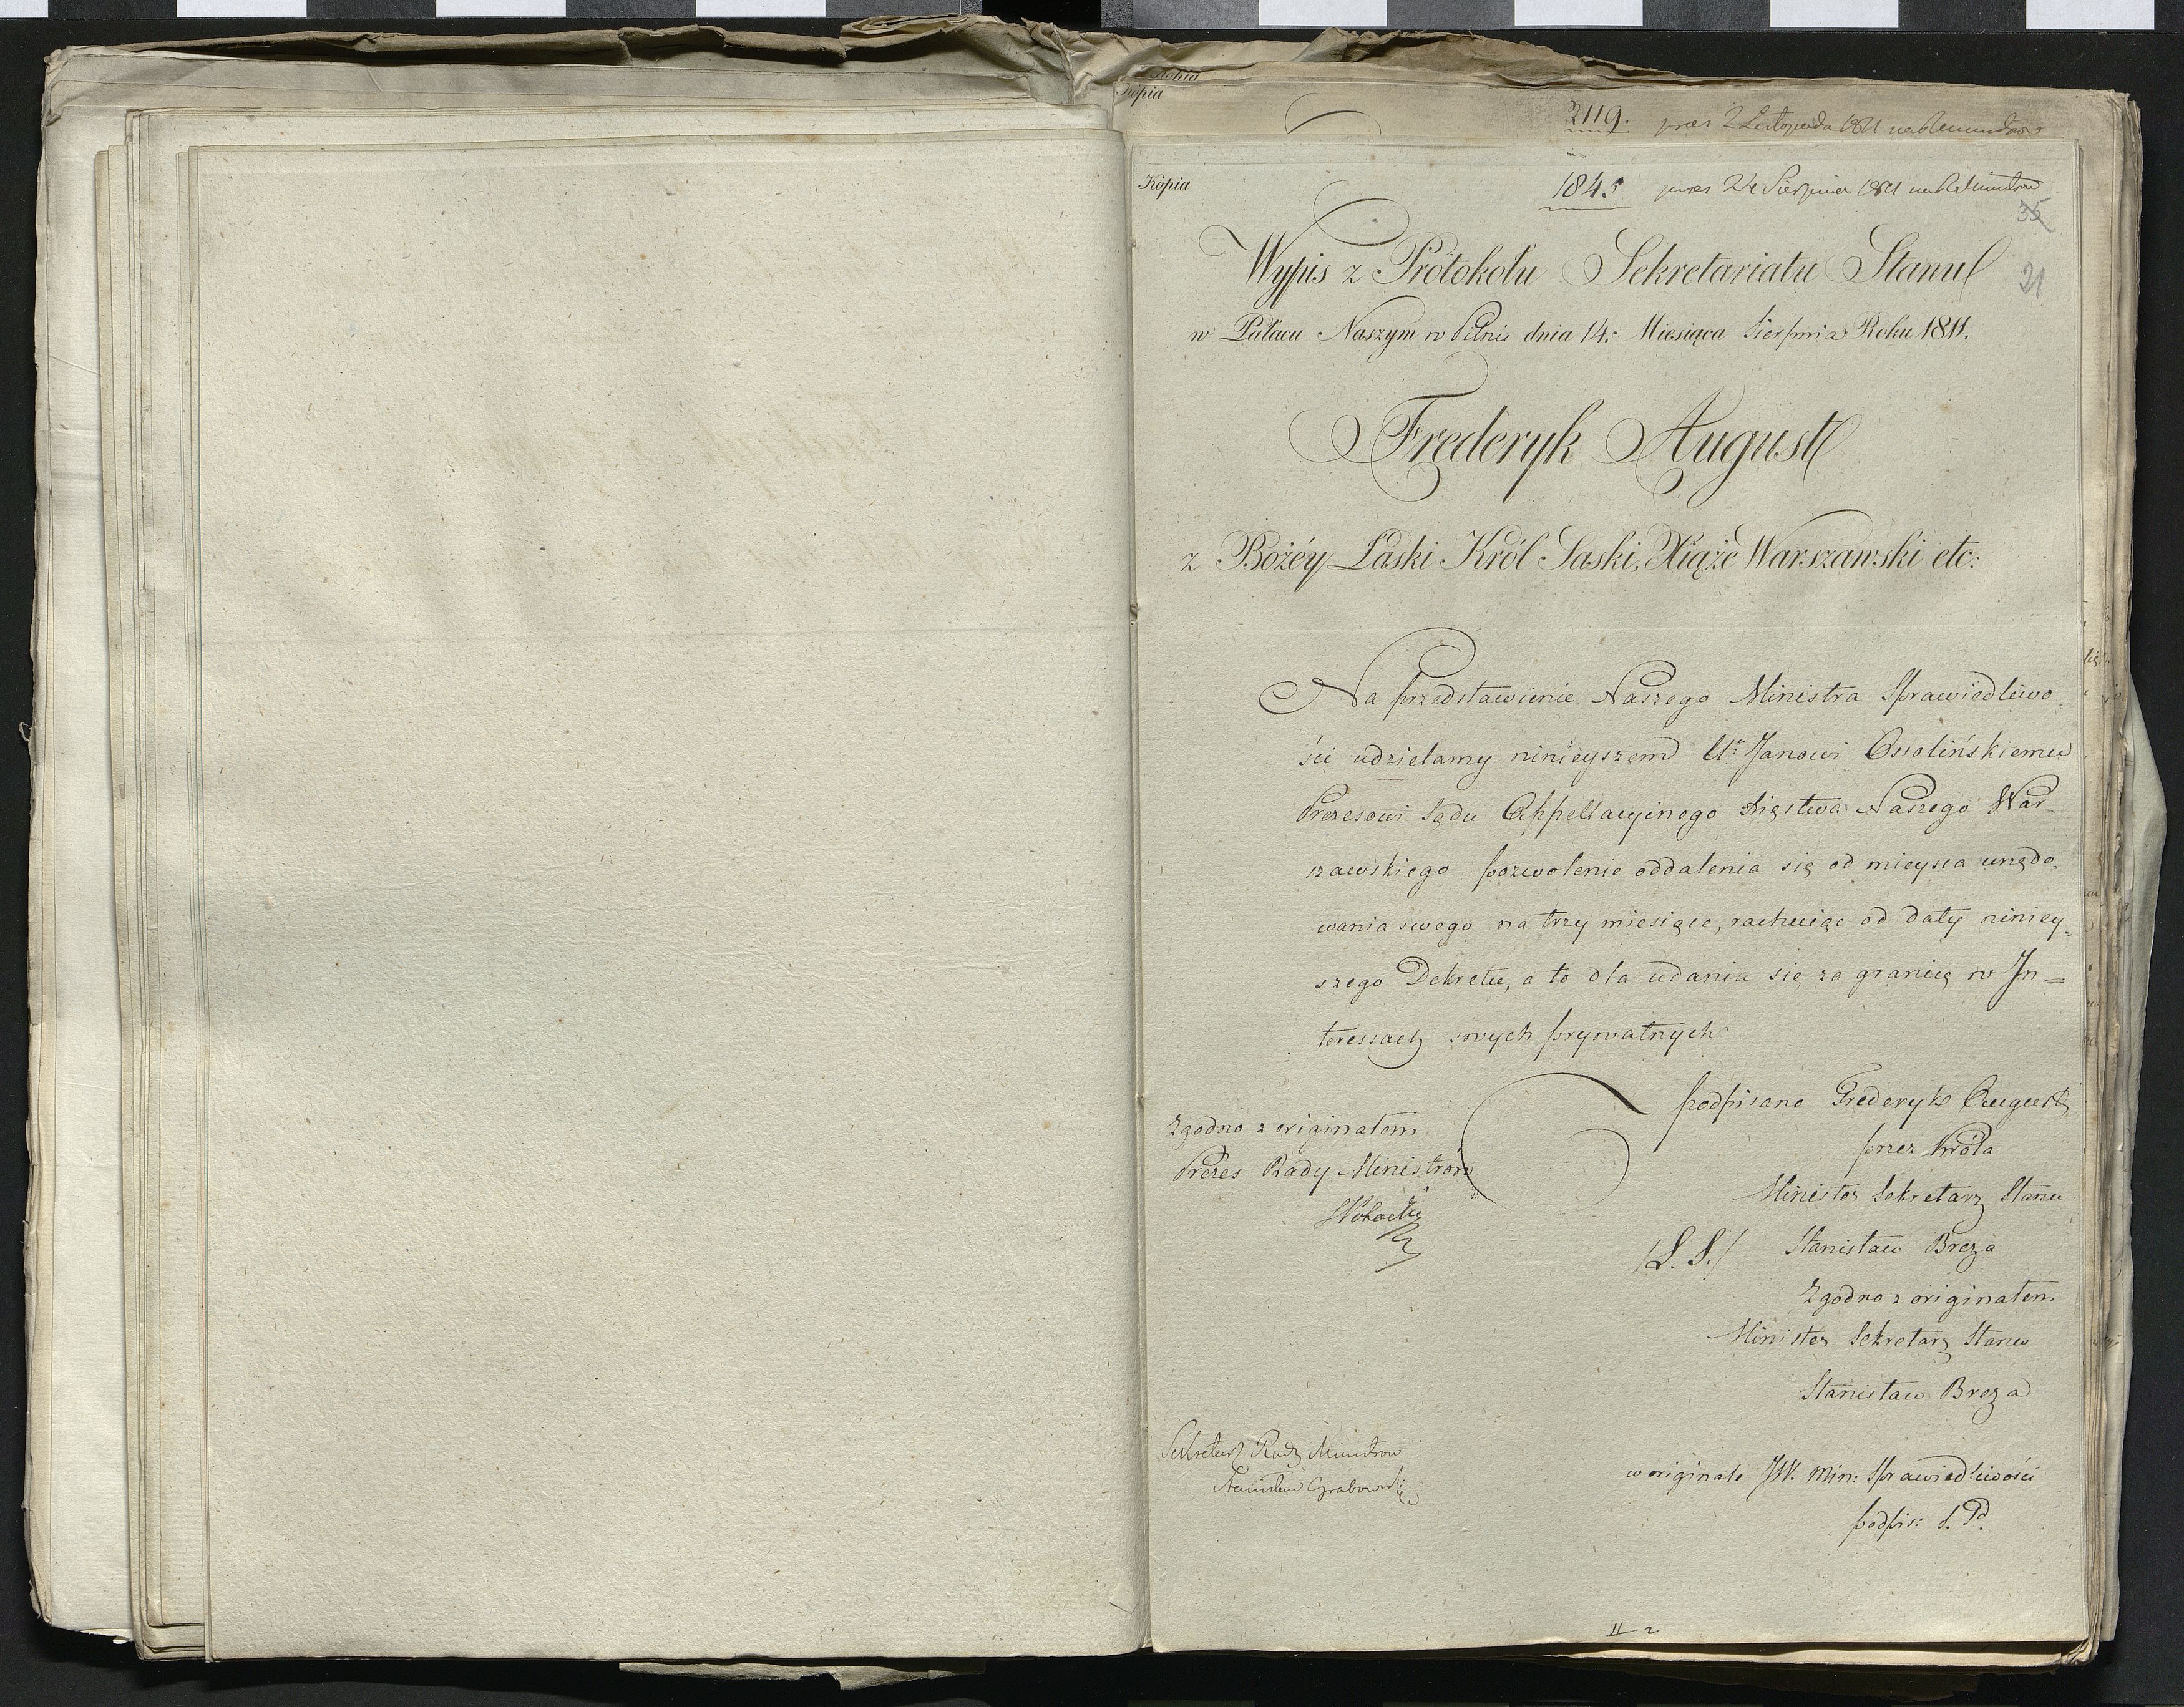 Kopia
Kopia
2119. præs 2 Listopada 1811 na R Ministrów
Kopia
1845 præs 24 Sierpnia 1811 na R Ministrów
35
Wypis z Protokołu Sekretariatu Stanu
21
w Pałacu Naszym w Pilnic dnia 14. Miesiąca Sierpnia Roku 1811.
Frederyk August
z Bożéy Łaski Król Saski, Xiąże Warszawski etc:
Na przedstawienie Naszego Ministra Sprawiedliwo-
ści udzielamy ninieyszem Ur. Janowi Ossolińskiemu
Prezesowi Sądu Appellacyinego Xięstwa Naszego War-
szawskiego pozwolenie oddalenia się od mieysca urzędo-
wania swego na trzy miesiące, rachuiąc od daty niniey-
szego Dekretu, a to dla udania się za granicę w In=
teressach swych prywatnych
podpisano Frederyk August
przez Króla
Minister Sekretarz Stanu
(L. S.) Stanisław Breza
Zgodno z originałem
Minister Sekretarz Stanu
Stanisław Breza
Zgodno z originałem
Prezes Rady Ministrów
SPotocki
Sekretarz Rady Ministrow
Stanisław Grabowski
w originale JW. Min: Sprawiedliwości
podpis:
II 2